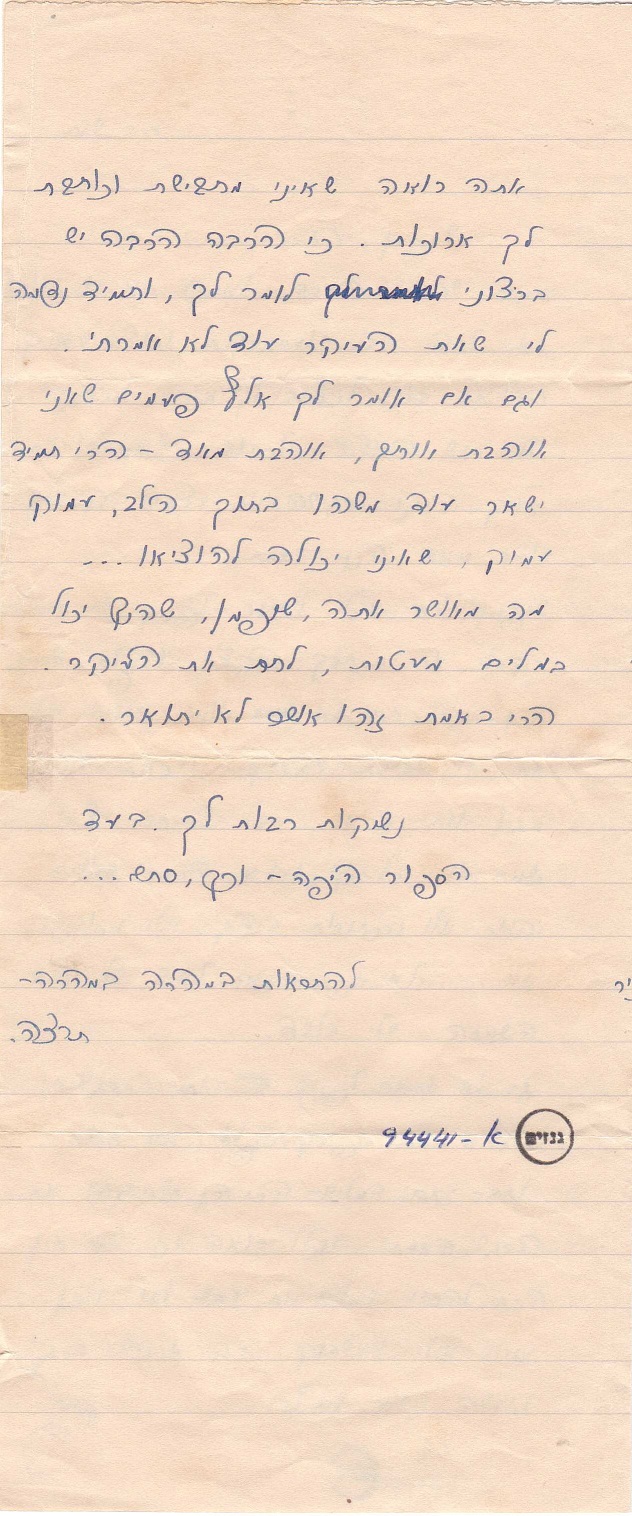 אתה רואה שאיני מתביישת וכותבת
לך ארוכות. כי הרבה הרבה יש
ברצוני לומר לך, ותמיד נדמה
לי שאת העיקר עוד לא אמרתי.
וגם אם אומר לך אלף פעמים שאני
אוהבת אותך, אוהבת מאד – הרי תמיד
ישאר עוד משהו בתוך הלב, עמוק
עמוק, שאיני יכולה להוציאו...
מה מאושר אתה, שהנך יכול
במלים מעטות, לתת את העיקר.
הרי באמת זהו אושר לא יתואר.
נשיקות רבות לך. בעד
הספור היפה – וכך, סתם...
להתראות במהרה במהרה –
תרצה.
גנזים א-94441